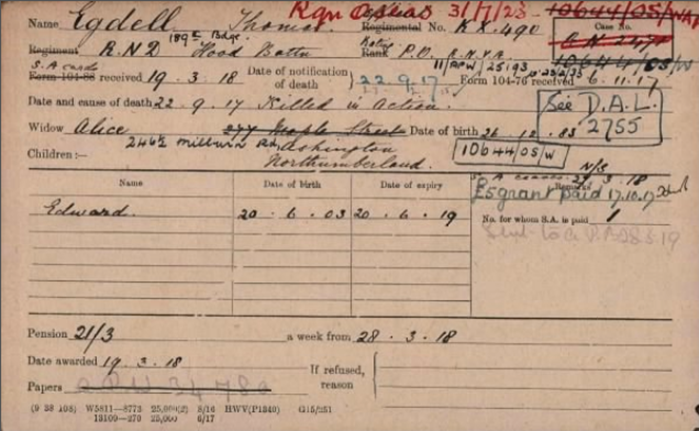 Name Egdell Thomas. Regimental No. KX.490 10644/OS/W
31/7/23
Case No.
189th Bdge.
Regiment R.N.D Hood Battn Rank P.O. R.N.V.R. 10644/OS/W
S.A cards
Form 104-88 received 19.3.18 Date of notification of death 22.9.17 Form 104-76 received 6.11.17
Date and cause of death 22.9.17 Killed in Action.
See D.A.L.
2755
Widow Alice 277 Maple Street Date of birth 26.12.83
246½ Milburn Rd, Ashington
Northumberland.
10644/OS/W
Children:—
N/S
S.A ceases 27.3.18
Name Date of birth Date of expiry Remarks
£5 grant paid 17.10.17
Edward. 20.6.03 20.6.19
No. for whom S.A. is paid 1
Pension 21/3 a week from 28.3.18
Date awarded 19.3.18
If refused, reason
Papers
(9 38 108) W5811—8773 25,000(2) 8/16 HWV(P1340) G15/251
13109—270 25,000 6/17